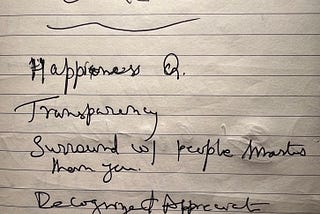 Happiness Q.
Transparency
Surround w/ people smarter
than you.
Recognize & Appreciate